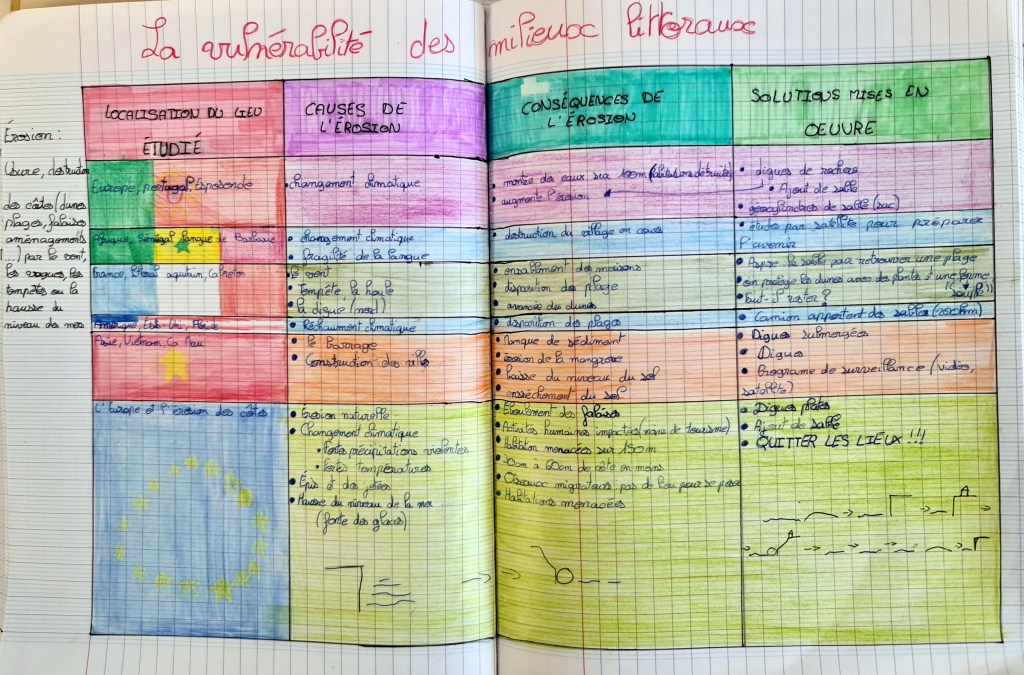 La vulnérabilité des milieux littoraux
LOCALISATION DU LIEU
ÉTUDIÉ
CAUSES DE
L'ÉROSION
CONSÉQUENCES DE
L'ÉROSION
SOLUTIONS MISES EN
OEUVRE
Érosion :
Usure, destruction
des côtes (dunes
plages, falaises
aménagements
...) par le vent,
les vagues, les
tempêtes ou la
hausse du
niveau des mers
Europe, Portugal, Esposende
• changement climatique
• montée des eaux sur 100m (habitations détruites)
• augmente l'érosion
• digues de rochers
• Ajout de sable
• géocylindres de sable (sac)
Afrique, Sénégal, Langue de Barbarie
• changement climatique
• fragilité de la langue
• destruction du village en cours
• études par satellite pour préparer
l'avenir
France, littoral aquitain,
• le vent
• Tempête, la houle
• la digue (nord)
• ensablement des maisons
• disparition des plage
• avancée des dunes
• Aspire le sable pour retrouver une plage
• on protège les dunes avec des plantes et une forme
"souple"
• Doit-il rester ?
Amérique,
• Réchaument climatique
• disparition des plages
• Camion apportent des sables
Asie, Vietnam, Ca Mau
• le barrage
• Construction des villes
• Manque de sédiment
• érosion de la mangrove
• Hausse du niveau du sel
• assèchement du sol
• Digues submergées
• Digues
• Programe de surveillance (vidéo,
satellite)
L'Europe et l'érosion des côtes
• Érosion naturelle
• Changement climatique
• Fortes précipitations violentes
• fortes températures
• Épis et des jetées
• Hausse du niveau de la mer
(fonte des glaces)
• Éboulement des falaises
• Activités humaines impactées (moins de tourisme)
• Habitation menacées sur 150m
• 30cm à 60cm de côte en moins
• Oiseaux migrateurs : pas de lieu pour se poser
• Habitations menacées
• Digues
• Ajout de sable
• QUITTER LES LIEUX !!!